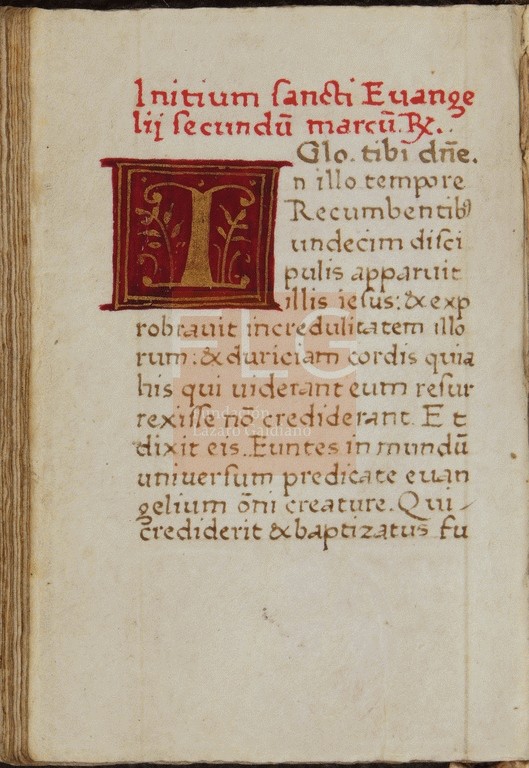 Initium sancti Euange
lij secundū marcū. ℞.
Glo. tibi dñe.
In illo tempore
Recumbentibꝰ
undecim disci
pulis apparuit
illis iesus: & exp
robrauit incredulitatem illo
rum: & duriciam cordis quia
his qui uiderant eum resur
rexisse nō crediderant. Et
dixit eis. Euntes in mundū
uniuersum predicate euan
gelium oñi creature. Qui
crediderit & baptizatus fu
FLG
Fundación
Lázaro Galdiano